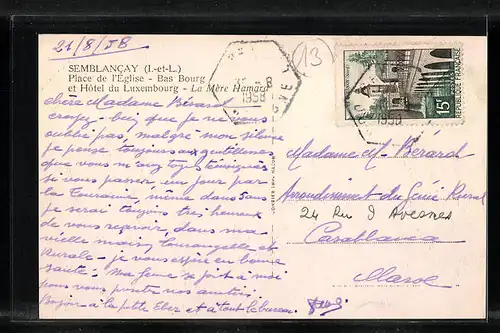 21/8/58
SEMBLANÇAY (I.-et-L.)
Place de l'Église - Bas Bourg
et Hôtel du Luxembourg - La Mère Hamard
13
1958
1958
15F
POSTES
REPUBLIQUE FRANÇAISE
chère Madame Bérard
croyez-bien que je ne vous
oublie pas, malgré mon silence
je pense toujours aux gentillesses
que vous m'avez témoignées
si vous passez un jour par
la Touraine, même dans
je serai toujours très heureux
de vous recevoir, dans ma
vieille maison Tourangelle et
Rurale - je vous espère en bonne
santé - Ma femme se joint à moi
pour vous present nos amitiés
Bonjour à la ptte Eber et à tout le bureau.
Madame M. Bérard
Arrondissement du Génie Rural
24 Rue d'Avesnes
Casablanca
Maroc